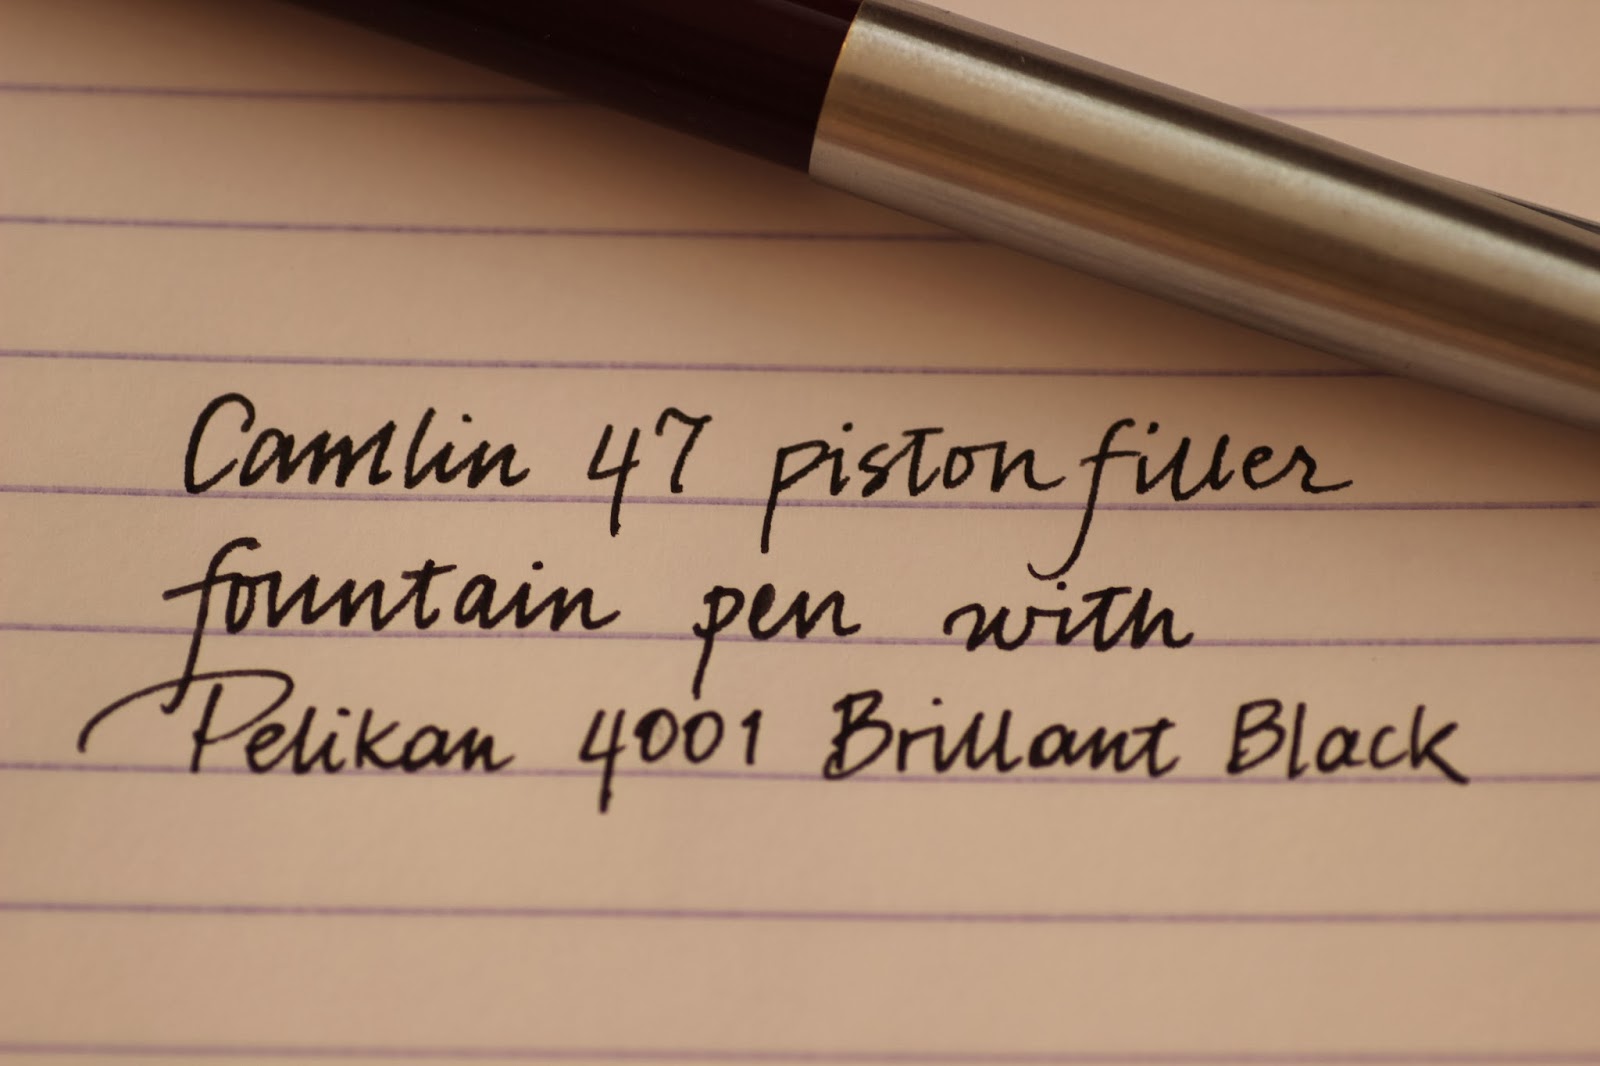 Camlin 47 piston filler
fountain pen with
Pelikan 4001 Brillant Black